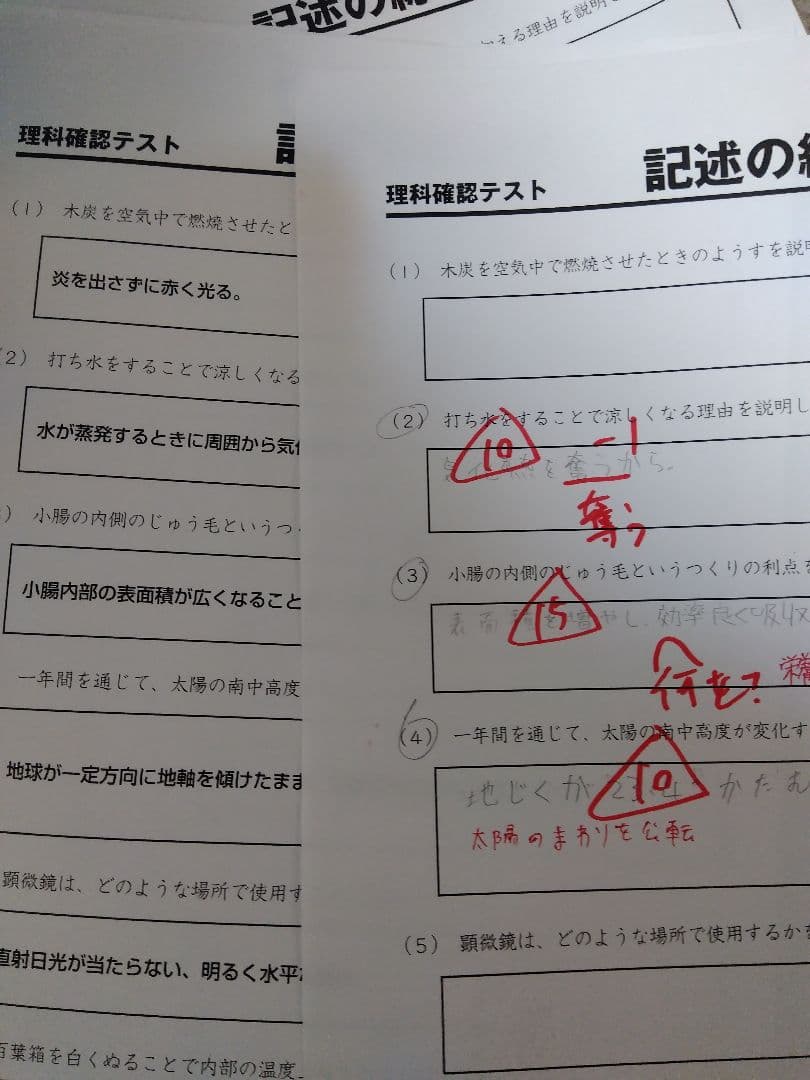 記述の
える理由を説明
理科確認テスト
(1) 木炭を空気中で燃焼させたと
炎を出さずに赤く光る。
2) 打ち水をすることで涼しくなる
水が蒸発するときに周囲から気化
) 小腸の内側のじゅう毛というつ
小腸内部の表面積が広くなること
一年間を通じて、太陽の南中高度
地球が一定方向に地軸を傾けたまま
顕微鏡は、どのような場所で使用す
直射日光が当たらない、明るく水平
百葉箱を白くぬることで内部の温度
理科確認テスト
記述の
(1) 木炭を空気中で燃焼させたときのようすを説明
(2) 打ち水をすることで涼しくなる理由を説明し
10
-1
を奪うから。
奪う
(3) 小腸の内側のじゅう毛というつくりの利点を
15
表面積を増やし、効率良く吸収
何を?
栄養
(4) 一年間を通じて、太陽の南中高度が変化す
10
地じくが23.4°かたむ
太陽のまわりを公転
(5) 顕微鏡は、どのような場所で使用するかを